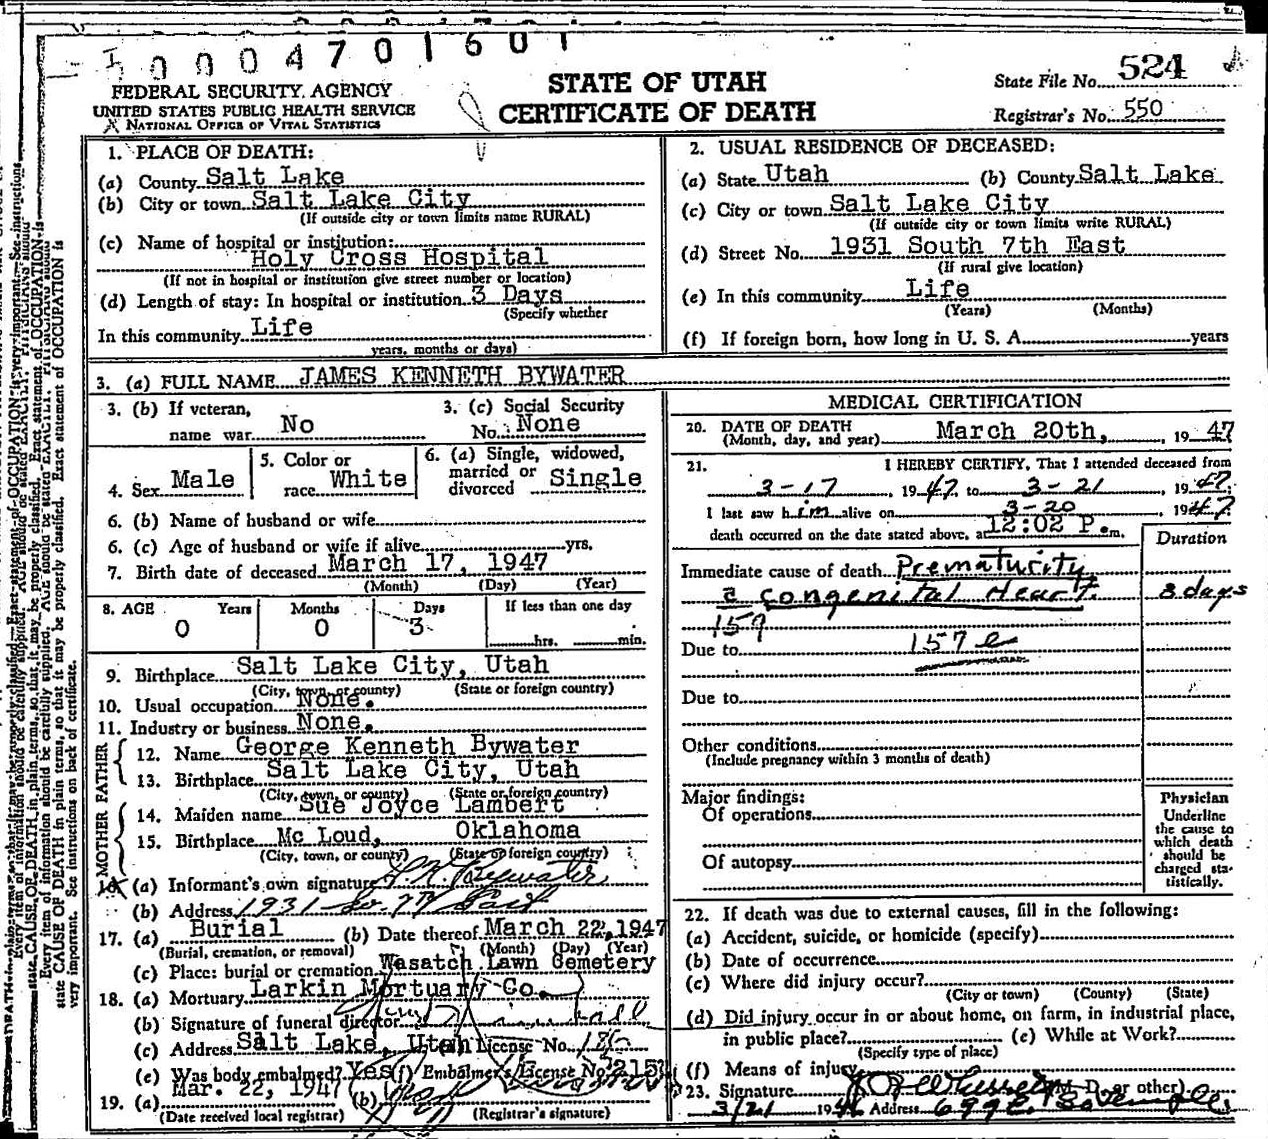 0004701601
FEDERAL SECURITY AGENCY
UNITED STATES PUBLIC HEALTH SERVICE
NATIONAL OFFICE OF VITAL STATISTICS
STATE OF UTAH
CERTIFICATE OF DEATH
State File No. 524
Registrar's No. 550
1. PLACE OF DEATH:
(a) County Salt Lake
(b) City or town Salt Lake City
(If outside city or town limits name RURAL)
(c) Name of hospital or institution:
Holy Cross Hospital
(If not in hospital or institution give street number or location)
(d) Length of stay: In hospital or institution 3 Days
(Specify whether
In this community Life
years, months or days)
2. USUAL RESIDENCE OF DECEASED:
(a) State Utah (b) County Salt Lake
(c) City or town Salt Lake City
(If outside city or town limits write RURAL)
(d) Street No. 1931 South 7th East
(If rural give location)
(e) In this community Life
(Years) (Months)
(f) If foreign born, how long in U. S. A. years
3. (a) FULL NAME JAMES KENNETH BYWATER
3. (b) If veteran, name war No
3. (c) Social Security No. None
4. Sex Male
5. Color or race White
6. (a) Single, widowed, married or divorced Single
6. (b) Name of husband or wife
6. (c) Age of husband or wife if alive yrs.
7. Birth date of deceased March 17, 1947
(Month) (Day) (Year)
8. AGE Years Months Days If less than one day
0 0 3 hrs. min.
9. Birthplace Salt Lake City, Utah
(City, town, or county) (State or foreign country)
10. Usual occupation None.
11. Industry or business None.
FATHER
12. Name George Kenneth Bywater
13. Birthplace Salt Lake City, Utah
(City, town, or county) (State or foreign country)
MOTHER
14. Maiden name Sue Joyce Lambert
15. Birthplace Mc Loud, Oklahoma
(City, town, or county) (State or foreign country)
16. (a) Informant's own signature Bywater
(b) Address 1931 So. 7th East
17. (a) Burial (b) Date thereof March 22, 1947
(Burial, cremation, or removal) (Month) (Day) (Year)
(c) Place: burial or cremation Wasatch Lawn Cemetery
18. (a) Mortuary Larkin Mortuary Co.
(b) Signature of funeral director
(c) Address Salt Lake, Utah License No. 186
(e) Was body embalmed? Yes (f) Embalmer's License No. 215
19. (a) Mar. 22, 1947 (b)
(Date received local registrar) (Registrar's signature)
MEDICAL CERTIFICATION
20. DATE OF DEATH
(Month, day, and year) March 20th, , 1947
21. I HEREBY CERTIFY, That I attended deceased from
3-17, 1947, to 3-21, 1947
I last saw him alive on 3-20, 1947
death occurred on the date stated above, at 12:02 P. m.
Duration
Immediate cause of death Prematurity
c̄ Congenital Heart. 3 days
159
Due to 157 e
Due to
Other conditions
(Include pregnancy within 3 months of death)
Major findings:
Of operations
Of autopsy
Physician
Underline
the cause to
which death
should be
charged sta-
tistically.
22. If death was due to external causes, fill in the following:
(a) Accident, suicide, or homicide (specify)
(b) Date of occurrence
(c) Where did injury occur?
(City or town) (County) (State)
(d) Did injury occur in or about home, on farm, in industrial place,
in public place? (e) While at Work?
(Specify type of place)
(f) Means of injury
23. Signature (M. D. or other)
3/21 Address 699 E. So Temple